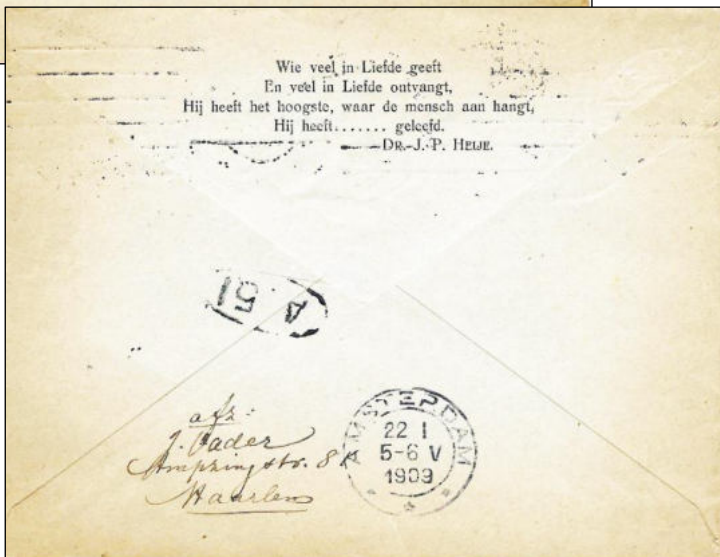 Wie veel in Liefde geeft
En veel in Liefde ontvangt,
Hij heeft het hoogste, waar de mensch aan hangt,
Hij heeft....... geleefd.
DR. J. P. HEIJE.
A 51
afz:
J. Vader
Ampzingstr. 8
Haarlem
AMSTERDAM
22 1
5-6 V
1909